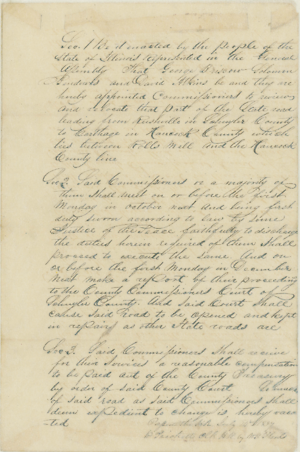 Sec. 1 Be it enacted by the people of the
State of Illinois represented in the General
Assembly That George Brown Solomon
and David Atkins be and they are
hereby appointed Commissioners to review
and relocate that part of the State road
leading from Rushville in Schuyler County
to Carthage in Hancock County which
lies between Mill and the Hancock
County line
Sec. 2 Said Commissioners or a majority of
them shall meet on or before the first
Monday in October next and being first
duly sworn according to law by some
Justice of the Peace faithfully to discharge
the duties herein required of them shall
proceed to execute the same And on
or before the first Monday in December
Next make a report of their proceeding
to the County Commissioners Court of
Schuyler County. And said Court shall
cause said road to be opened and kept
in repairs as other State roads are
Sec. 3. Said Commissioners shall receive
for their services a reasonable compensation
to be paid out of the County Treasury
by order of said County Court
of said road as said Commissioners shall
deem expedient to change is hereby vaca
ted